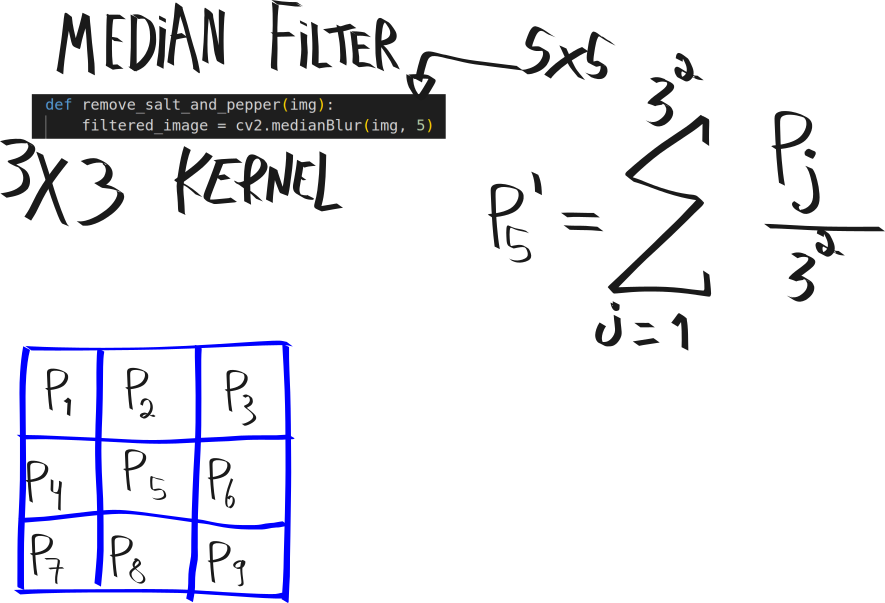 MEDiAN FiLTER
5x5
def remove_salt_and_pepper(img):
filtered_image = cv2.medianBlur(img, 5)
3X3 KERNEL
P₅' = ∑ Pⱼ / 3²
3²
j=1
P₁ P₂ P₃
P₄ P₅ P₆
P₇ P₈ P₉